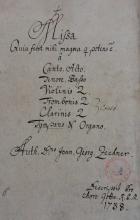 Missa
Quia fecit mihi magna q. potens e.
a
Canto. Alto.
Tenore. Basso
Violinis 2.
Trombonis 2.
Clarinis 2.
Tympano Organo.
Auth. Dno Joan. Georg. Zechner.
1738.